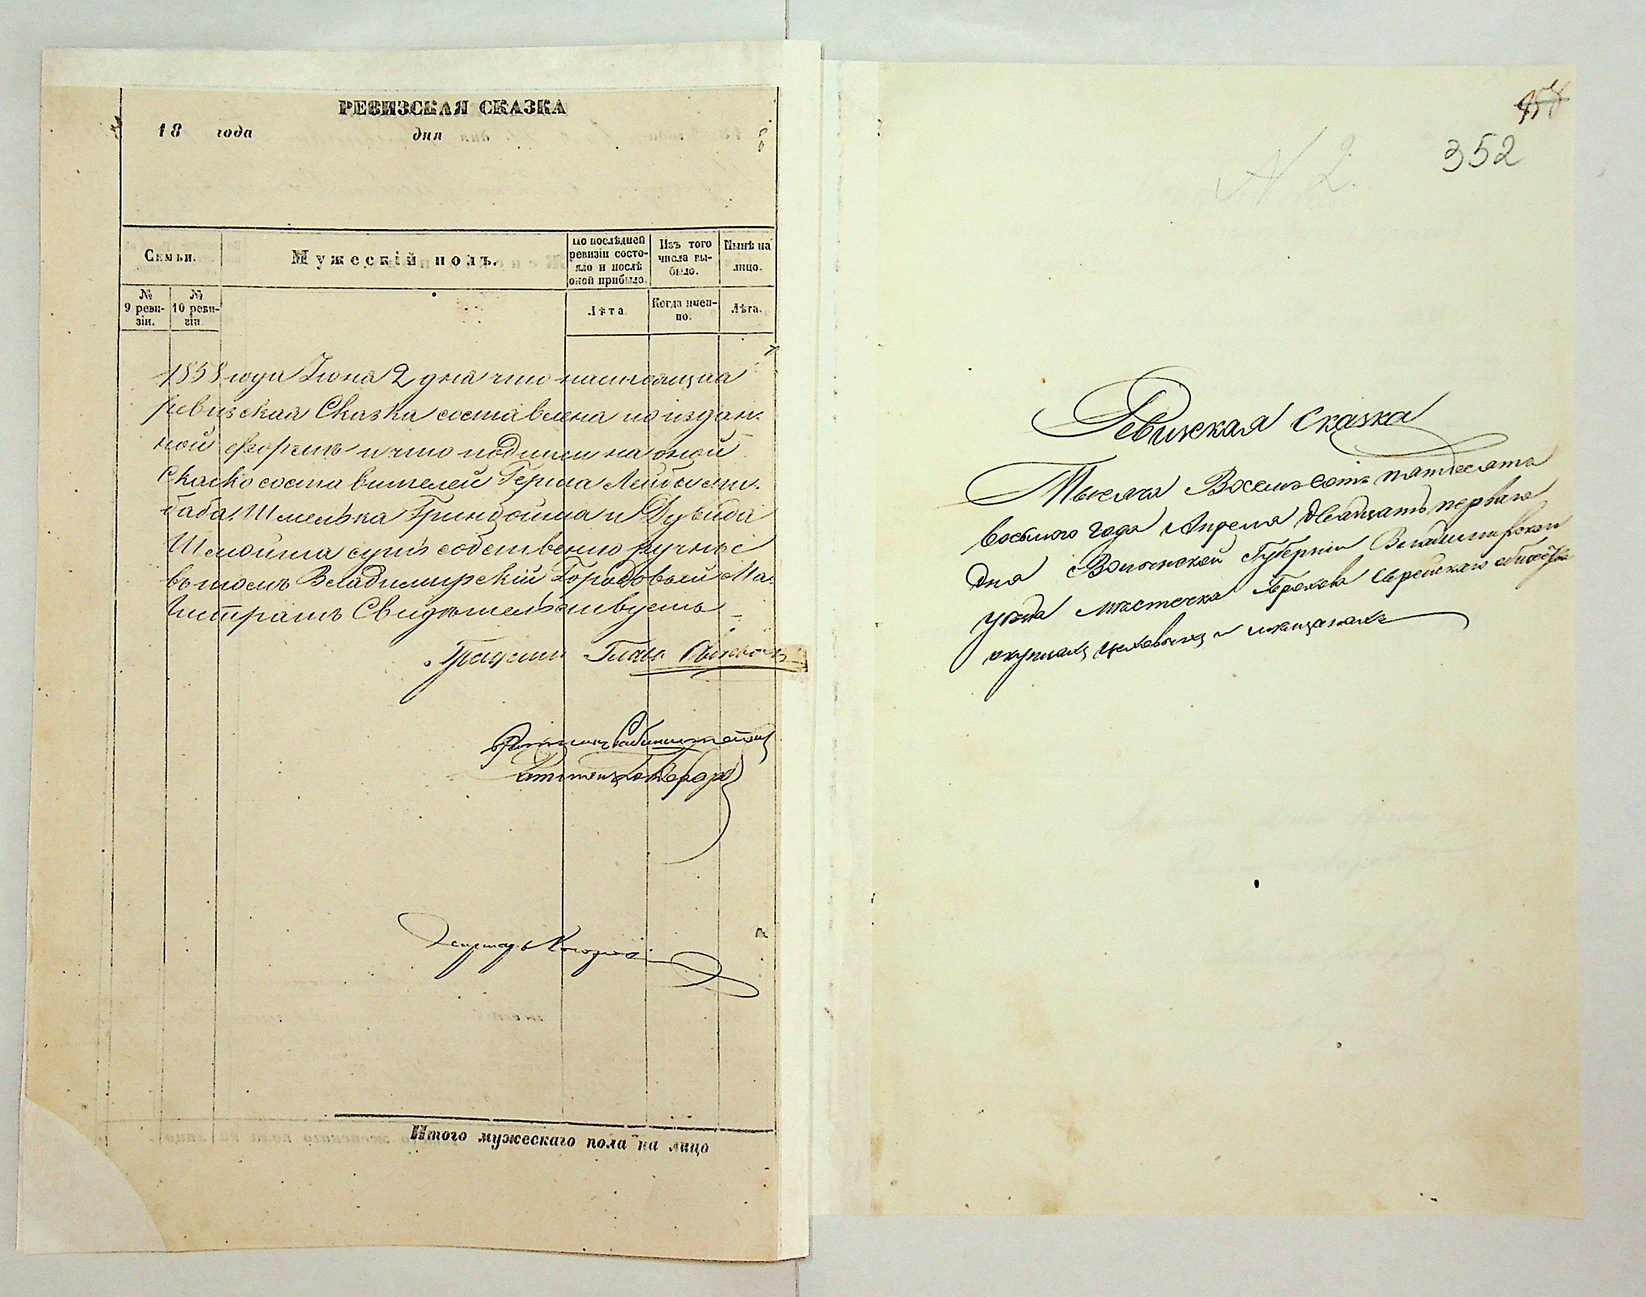 РЕВИЗСКАЯ СКАЗКА
18 года дня
Семьи.
Мужескій полъ.
По послѣдней ревизіи состояло и послѣ оной прибыло.
Изъ того числа выбыло.
Нынѣ на лицо.
№ 9 ревизіи.
№ 10 ревизіи
Лѣта.
Когда именно.
Лѣта.
1858 года Іюня 2 дня что настоящая
ревизская Сказка составлена по издан-
ной формѣ и что подписи на оной
Сказко составителей Герша
Шмелька и Дувида
суть собственно ручные
въ томъ Владимирскій Городовый Ма-
гистратъ Свидѣтельствуетъ
Итого мужескаго пола на лицо
458
352
№ 2
Ревизская сказка
Тысяча Восемьсотъ пятдесятъ
восьмого года Апреля двадцать перваго
дня Волынской Губерніи Владимирскаго
уезда местечка Еврейского общества
о купцах, цеховых и мещанахъ